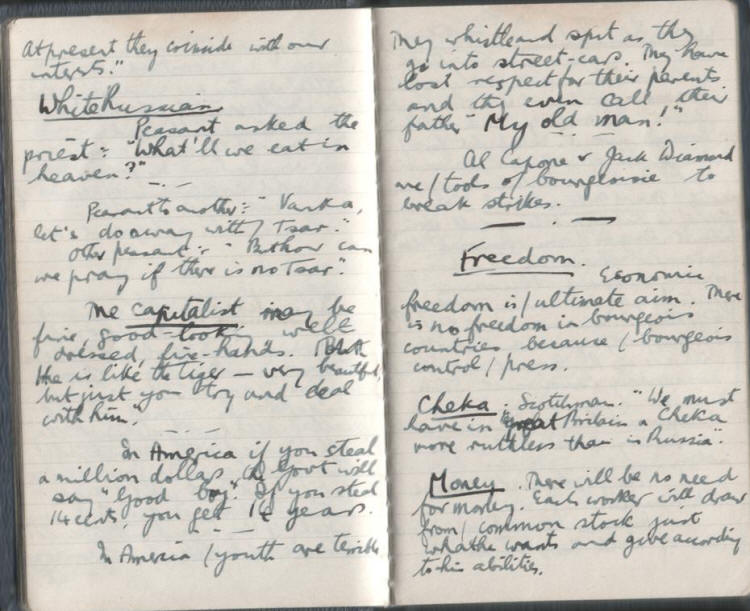 At present they coincide with our
interests."
White Russian
Peasant asked the
priest: "What'll we eat in
heaven?"
Peasant to another: "Vanka,
let's do away with / Tsar."
Other peasant: "But how can
we pray if there is no Tsar".
The capitalist may be
fine, good-looking well
dressed, fine-hands. But
He is like the tiger – very beautiful,
but just you try and deal
with him".
In America if you steal
a million dollars, the Govt will
say "Good boy". If you steal
14 cents, you get 14 years.
In America / youth are terrible
They whistle and spit as they
go into street-cars. They have
lost respect for their parents
and they even call their
father "My old man!"
Al Capone & Jack Diamond
are / tools of bourgeoisie to
break strikes.
Freedom.
Economic
freedom is / ultimate aim. There
is no freedom in bourgeois
countries because / bourgeois
control / press.
Cheka. Scotchman. "We must
have in Great Britain a Cheka
more ruthless than in Russia".
Money. There will be no need
for money. Each worker will draw
from / common stock just
what he wants and give according
to his abilities.